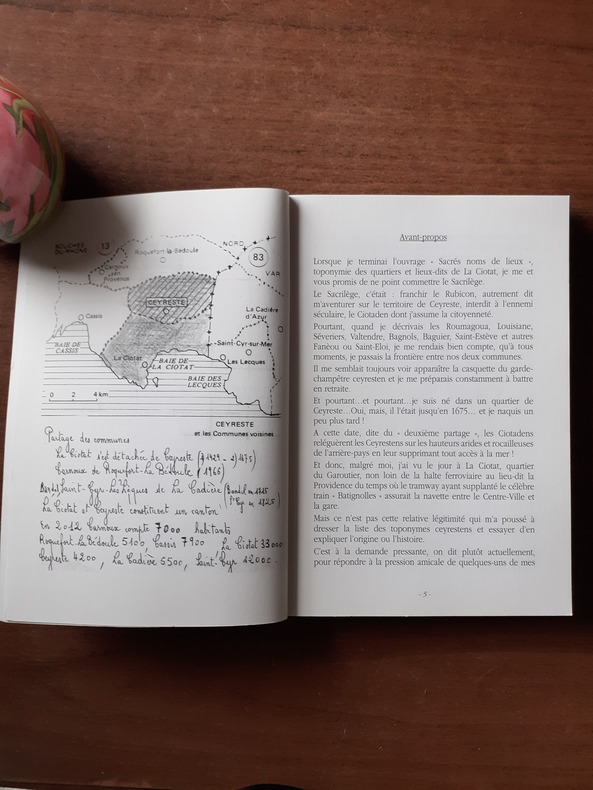 BOUCHES
DU-RHONE
13
Roquefort-la-Bédoule
NORD
83
VAR
Carnoux
en
Provence
CEYRESTE
La Cadière
d'Azur
Cassis
Saint-Cyr-sur-Mer
BAIE DE
CASSIS
La Ciotat
BAIE DE
LA CIOTAT
Les Lecques
BAIE DES
LECQUES
0 2 4 km
CEYRESTE
et les Communes voisines
Partage des communes
La Ciotat s'est détachée de Ceyreste
Carnoux de Roquefort-La Bédoule (1966)
Saint-Cyr-les Lèques de La Cadière
La Ciotat et Ceyreste constituent un canton
En 2012 Carnoux compte 7000 habitants
Roquefort-La Bédoule 5100 Cassis 7900 La Ciotat 33000
Ceyreste 4200, La Cadière 5500, Saint-Cyr 12000.
Avant-propos
Lorsque je terminai l'ouvrage « Sacrés noms de lieux »,
toponymie des quartiers et lieux-dits de La Ciotat, je me et
vous promis de ne point commettre le Sacrilège.
Le Sacrilège, c'était : franchir le Rubicon, autrement dit
m'aventurer sur le territoire de Ceyreste, interdit à l'ennemi
séculaire, le Ciotaden dont j'assume la citoyenneté.
Pourtant, quand je décrivais les Roumagoua, Louisiane,
Séveriers, Valtendre, Bagnols, Baguier, Saint-Estève et autres
Fanèou ou Saint-Eloi, je me rendais bien compte, qu'à tous
moments, je passais la frontière entre nos deux communes.
Il me semblait toujours voir apparaître la casquette du garde-
champêtre ceyresten et je me préparais constamment à battre
en retraite.
Et pourtant...et pourtant...je suis né dans un quartier de
Ceyreste...Oui, mais, il l'était jusqu'en 1675... et je naquis un
peu plus tard !
A cette date, dite du « deuxième partage », les Ciotadens
reléguèrent les Ceyrestens sur les hauteurs arides et rocailleuses
de l'arrière-pays en leur supprimant tout accès à la mer !
Et donc, malgré moi, j'ai vu le jour à La Ciotat, quartier
du Garoutier, non loin de la halte ferroviaire au lieu-dit la
Providence du temps où le tramway ayant supplanté le célèbre
train « Batignolles » assurait la navette entre le Centre-Ville et
la gare.
Mais ce n'est pas cette relative légitimité qui m'a poussé à
dresser la liste des toponymes ceyrestens et essayer d'en
expliquer l'origine ou l'histoire.
C'est à la demande pressante, on dit plutôt actuellement,
pour répondre à la pression amicale de quelques-uns de mes
- 5 -